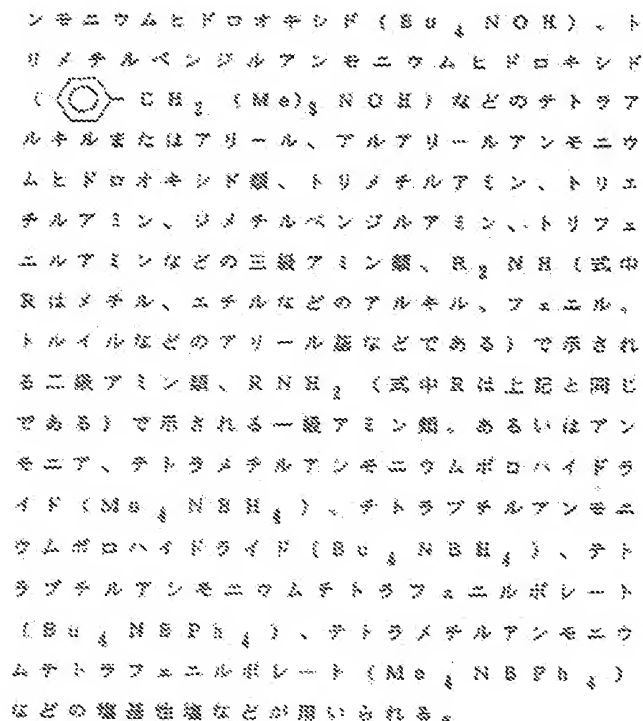 ンモニウムヒドロオキシド(Bu₄NOH)、ト
リメチルベンジルアンモニウムヒドロキシド
(-CH₂(Me)₃NOH)などのテトラア
ルキルまたはアリール、アルアリールアンモニウ
ムヒドロオキシド類、トリメチルアミン、トリエ
チルアミン、ジメチルベンジルアミン、トリフェ
ニルアミンなどの三級アミン類、R₂NH(式中
Rはメチル、エチルなどのアルキル、フェニル、
トルイルなどのアリール基などである)で示され
る二級アミン類、RNH₂(式中Rは上記と同じ
である)で示される一級アミン類、あるいはアン
モニア、テトラメチルアンモニウムボロハイドラ
イド(Me₄NBH₄)、テトラブチルアンモニ
ウムボロハイドライド(Bu₄NBH₄)、テト
ラブチルアンモニウムテトラフェニルボレート
(Bu₄NBPh₄)、テトラメチルアンモニウ
ムテトラフェニルボレート(Me₄NBPh₄)
などの塩基性塩などが用いられる。